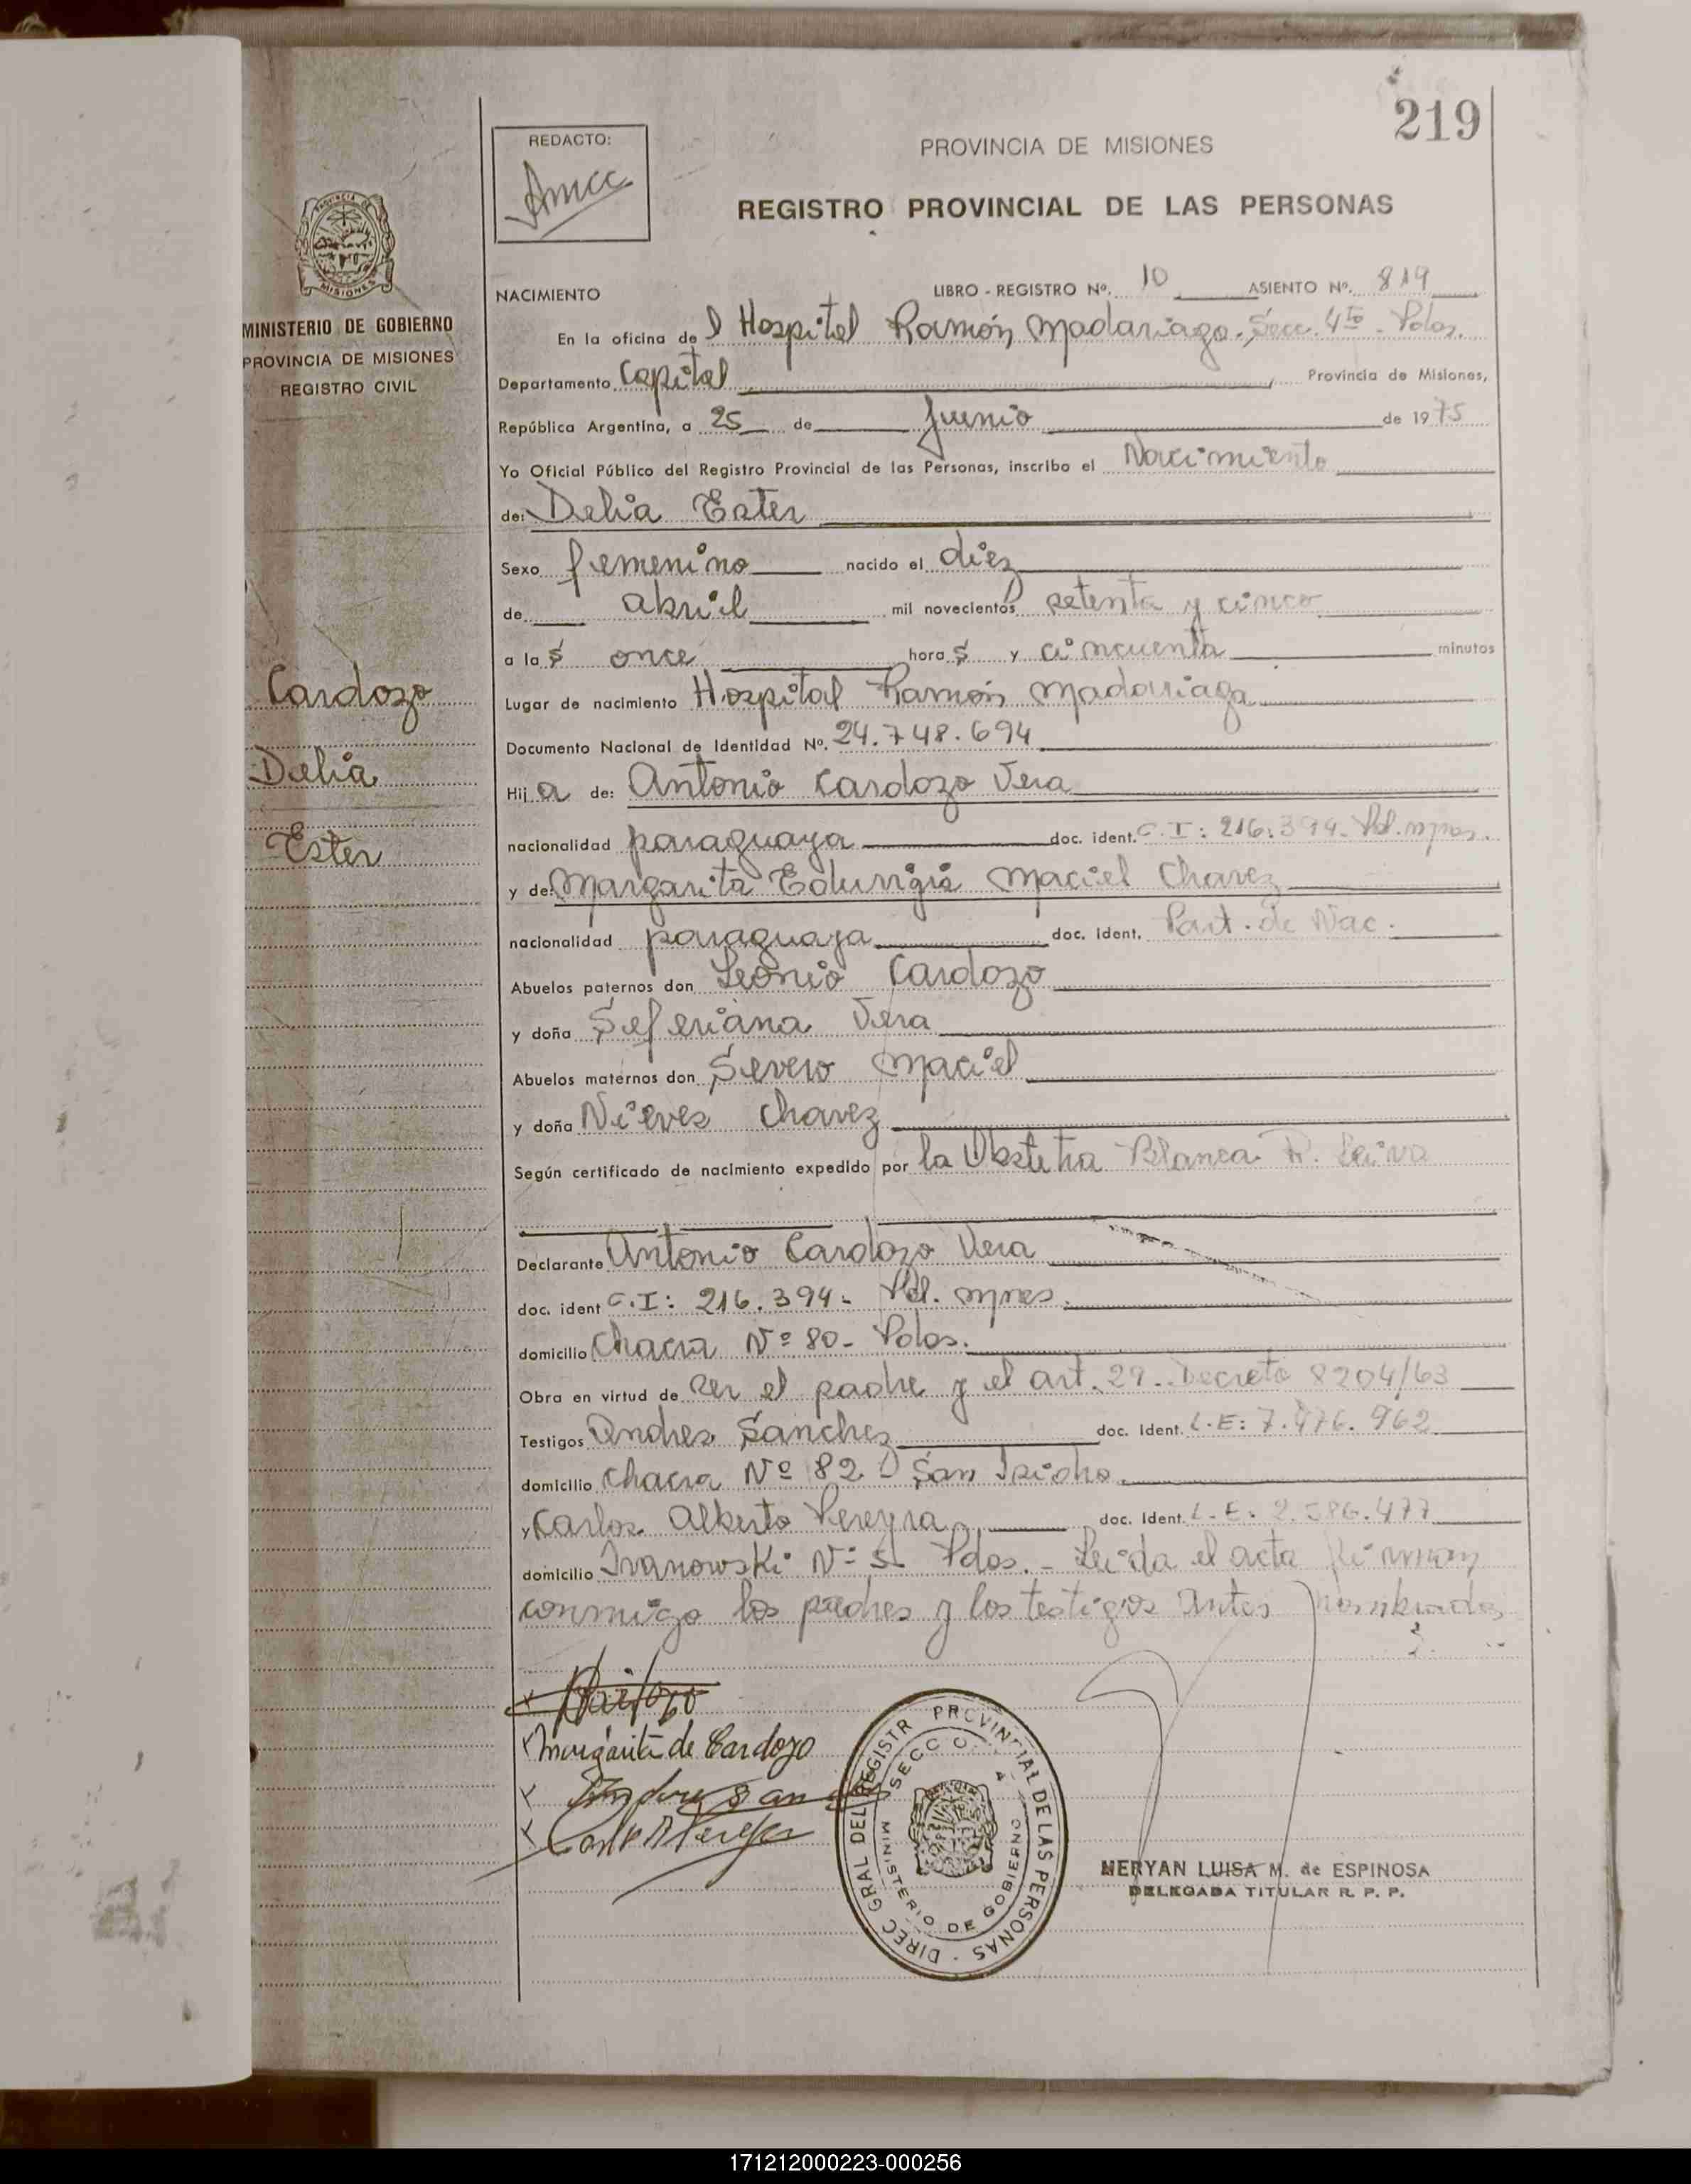 219
REDACTO:
PROVINCIA DE MISIONES
REGISTRO PROVINCIAL DE LAS PERSONAS
MISIONES
MINISTERIO DE GOBIERNO
PROVINCIA DE MISIONES
REGISTRO CIVIL
Cardozo
Delia
Ester
NACIMIENTO LIBRO - REGISTRO Nº. 10 ASIENTO Nº. 819
En la oficina de l Hospital Ramón Madariaga. Secc. 4ta - Pdas.
Departamento Capital Provincia de Misiones,
República Argentina, a 25 de Junio de 1975
Yo Oficial Público del Registro Provincial de las Personas, inscribo el Nacimiento
de: Delia Ester
Sexo femenino nacido el diez
de abril mil novecientos setenta y cinco
a la s once hora s y cincuenta minutos
Lugar de nacimiento Hospital Ramón Madariaga
Documento Nacional de Identidad Nº. 24.748.694
Hij a de: Antonio Cardozo Vera
nacionalidad paraguaya doc. ident. C.I: 216.394- Pol. Mnes.
y de: Margarita Eduvigis Maciel Chavez
nacionalidad paraguaya doc. ident. Part. de Nac.
Abuelos paternos don Leoncio Cardozo
y doña Seferiana Vera
Abuelos maternos don Severo Maciel
y doña Nieves Chavez
Según certificado de nacimiento expedido por la Obstetra Blanca R. Leiva
Declarante Antonio Cardozo Vera
doc. ident C.I: 216.394- Pol. Mnes.
domicilio Chacra Nº 80- Pdas.
Obra en virtud de ser el padre y el art. 29. Decreto 8204/63
Testigos Andres Sanchez doc. ident. L.E: 7.476.962
domicilio chacra Nº 82 San Isidro
y Carlos Alberto Pereyra doc. ident. L-E: 2.586.477
domicilio Ivanowski Nº 51 Pdas. - Leida el acta firman
conmigo los padres y los testigos antes nombrados
Margarita de Cardozo
DIREC GRAL DEL REGISTR PROVINCIAL DE LAS PERSONAS
MINISTERIO DE GOBIERNO
NERYAN LUISA M. de ESPINOSA
DELEGADA TITULAR R. P. P.
171212000223-000256